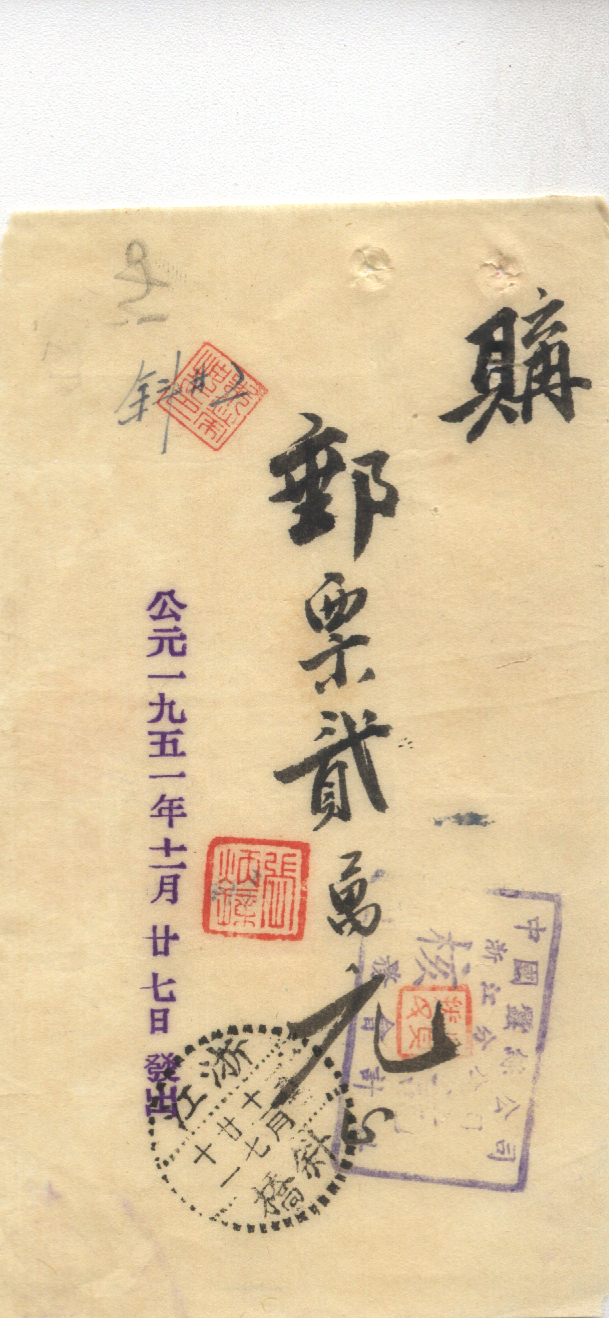 購
郵票貳萬元正
斜#2
公元一九五一年十一月廿七日發出
張
中國蠶絲公司
浙江分公司
核
會計
浙江
十一
廿七
十月
斜橋